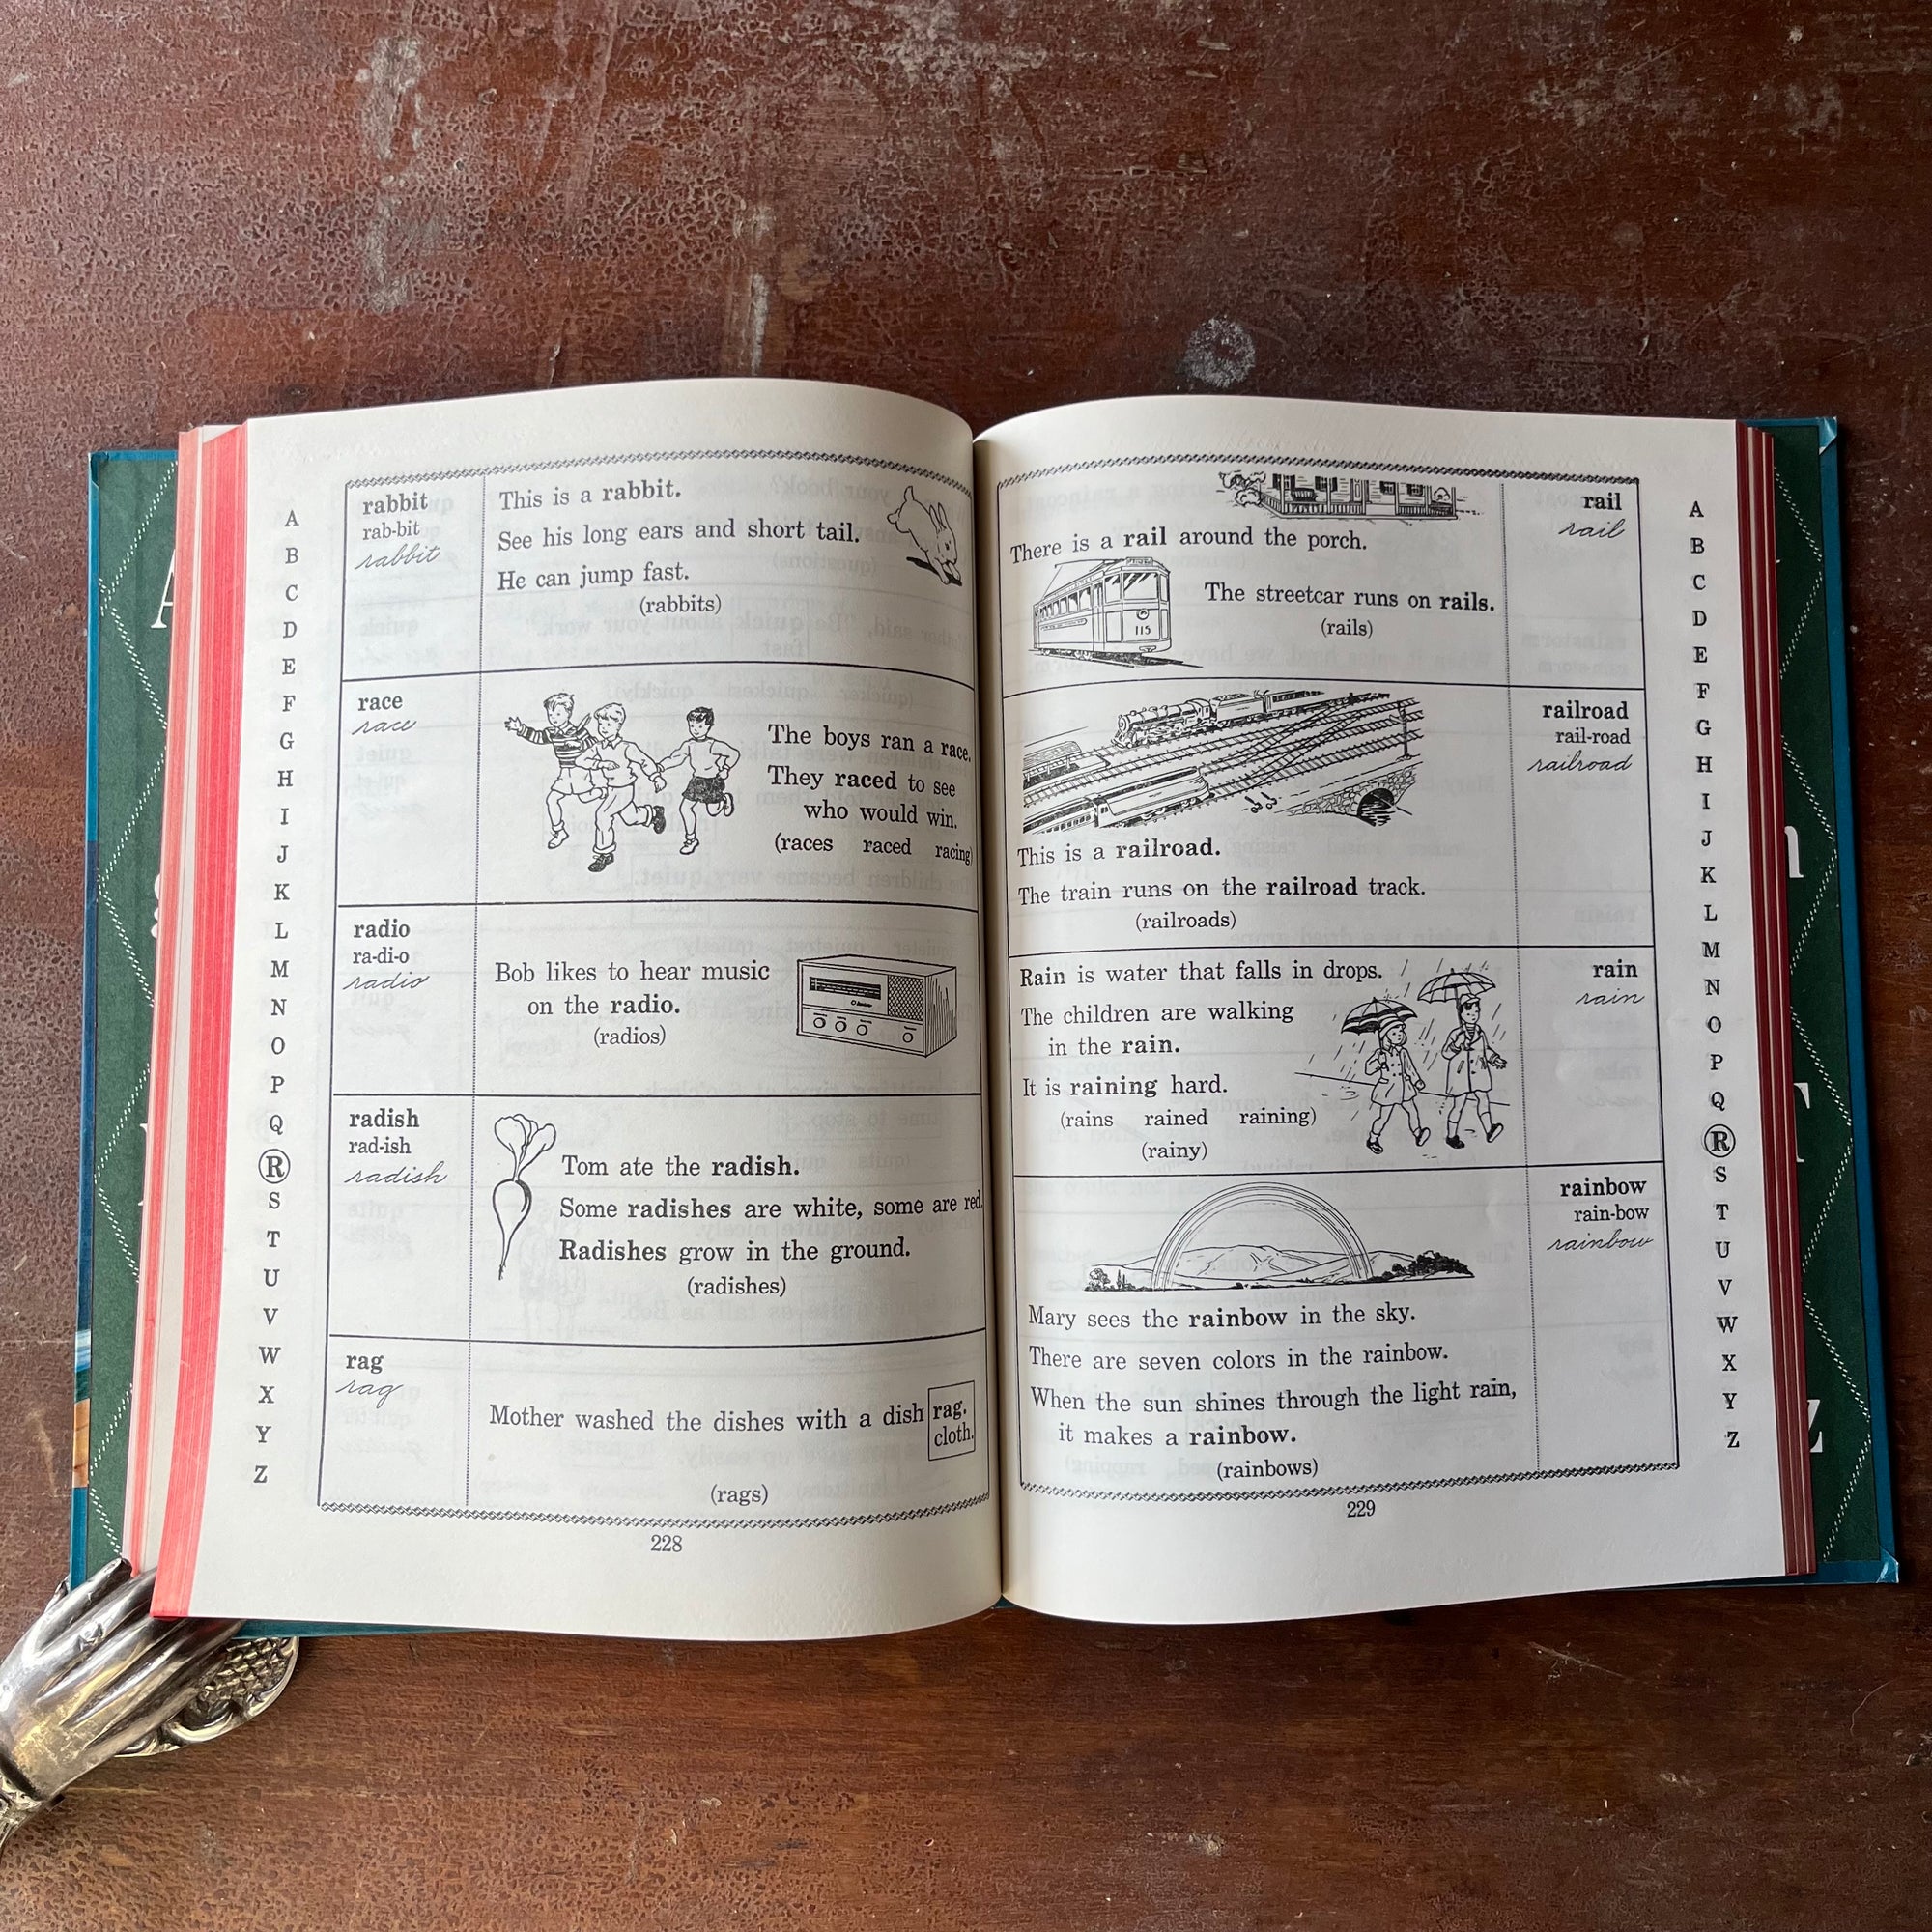 A
B
C
D
E
F
G
H
I
J
K
L
M
N
O
P
Q
R
S
T
U
V
W
X
Y
Z
rabbit
rab-bit
rabbit
This is a rabbit.
See his long ears and short tail.
He can jump fast.
(rabbits)
race
race
The boys ran a race.
They raced to see
who would win.
(races raced racing)
radio
ra-di-o
radio
Bob likes to hear music
on the radio.
(radios)
radish
rad-ish
radish
Tom ate the radish.
Some radishes are white, some are red.
Radishes grow in the ground.
(radishes)
rag
rag
Mother washed the dishes with a dish rag.
cloth.
(rags)
228
There is a rail around the porch.
115
The streetcar runs on rails.
(rails)
rail
rail
This is a railroad.
The train runs on the railroad track.
(railroads)
railroad
rail-road
railroad
Rain is water that falls in drops.
The children are walking
in the rain.
It is raining hard.
(rains rained raining)
(rainy)
rain
rain
Mary sees the rainbow in the sky.
There are seven colors in the rainbow.
When the sun shines through the light rain,
it makes a rainbow.
(rainbows)
rainbow
rain-bow
rainbow
229
A
B
C
D
E
F
G
H
I
J
K
L
M
N
O
P
Q
R
S
T
U
V
W
X
Y
Z